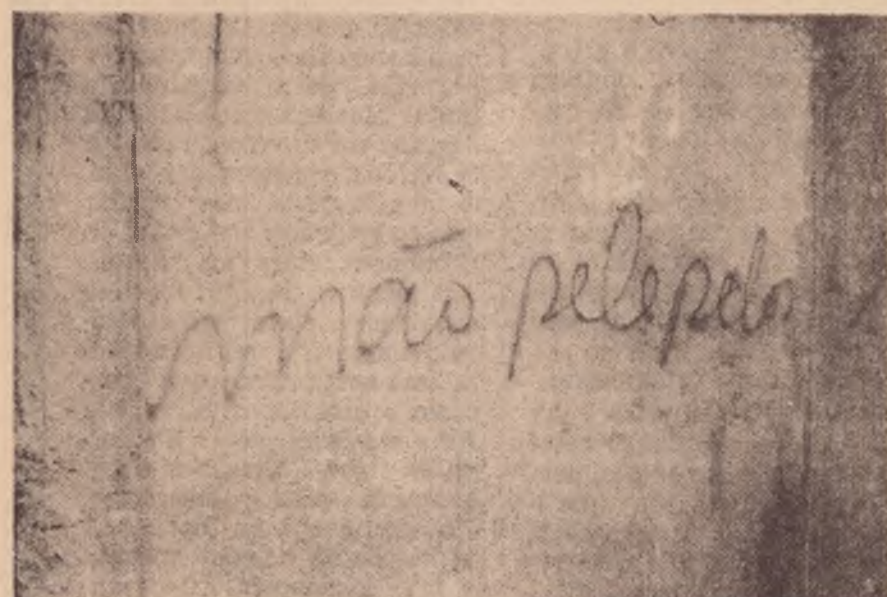 mão pelepelo